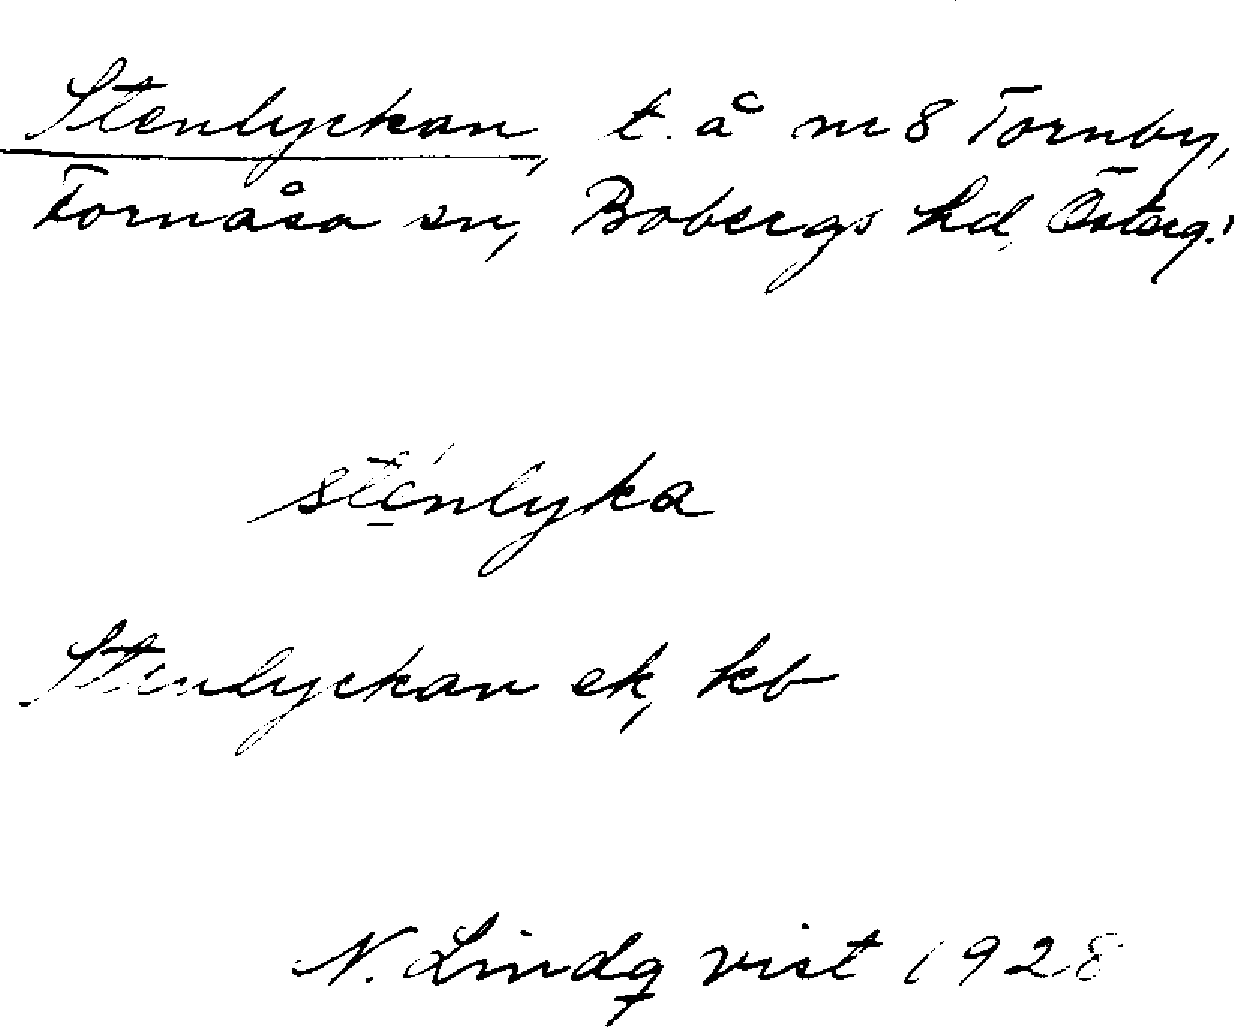 Stenlyckan, t. å nr 8 Tornby,
Fornåsa sn, Bobergs hd, Österg.
sténlyka
Stenlyckan ek, kb
N. Lindqvist 1928